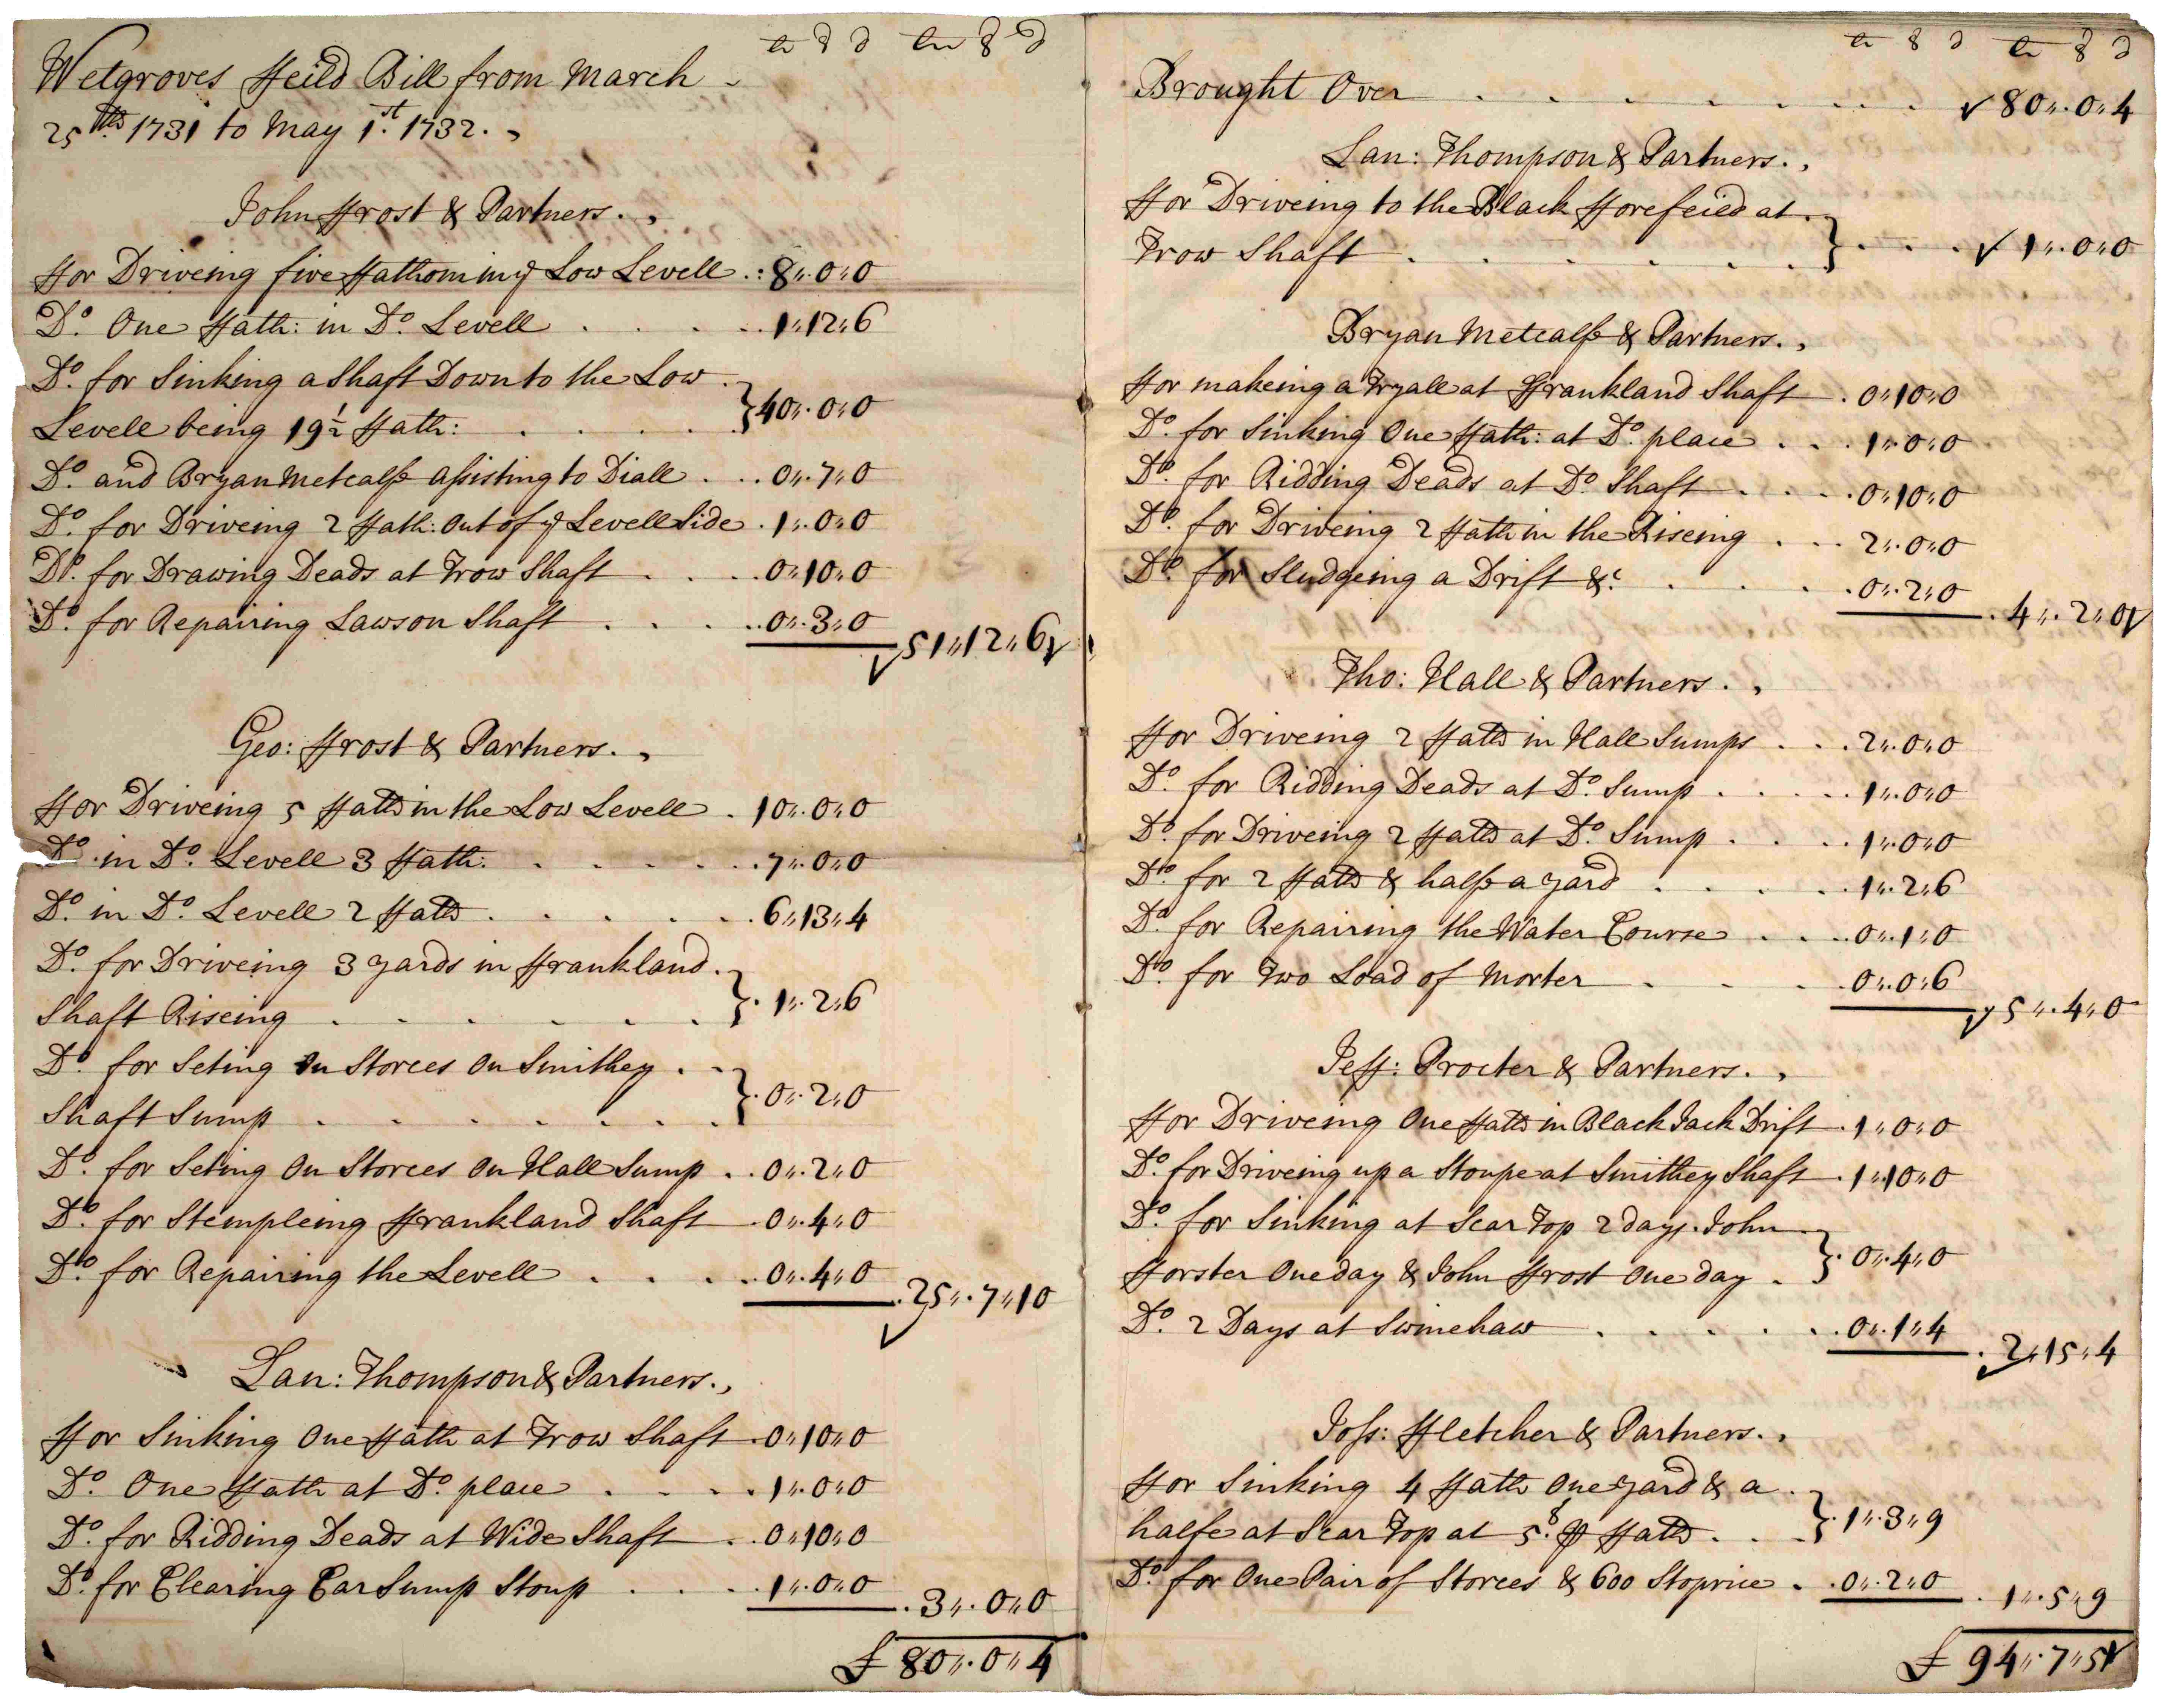 li s d li s d
Wetgroves ffeild Bill from March
25th 1731 to May 1st. 1732.
John ffrost & Partners.
ffor Driveing five ffathom in ye Low Levell . : 8 ,, 0 ,, 0
Do. One ffath: in Do. Levell . . . . 1 ,, 12 ,, 6
Do. for Sinking a Shaft Down to the Low
Levell being 19½ ffath: . . . . } 40 ,, 0 ,, 0
Do. and Bryan Metcalfe assisting to Diall . . . 0 ,, 7 ,, 0
Do. for Driveing 2 ffath: Out of ye Levell Side . 1 ,, 0 ,, 0
Do. for Drawing Deads at Trow Shaft . . . . 0 ,, 10 ,, 0
Do. for Repairing Lawson Shaft . . . . 0 ,, 3 ,, 0
51 ,, 12 ,, 6
Geo: ffrost & Partners.
ffor Driveing 5 ffaths in the Low Levell . 10 ,, 0 ,, 0
Do. in Do. Levell 3 ffath: . . . . 7 ,, 0 ,, 0
Do. in Do. Levell 2 ffaths . . . . 6 ,, 13 ,, 4
Do. for Driveing 3 yards in ffrankland
Shaft Riseing . . . . } 1 ,, 2 ,, 6
Do. for Seting On Storces On Smithey
Shaft Sump . . . . } 0 ,, 2 ,, 0
Do. for Seting On Storces On Hall Sump . . 0 ,, 2 ,, 0
Do. for Stempleing ffrankland Shaft . 0 ,, 4 ,, 0
Do. for Repairing the Levell . . . . 0 ,, 4 ,, 0
25 ,, 7 ,, 10
Lan: Thompson & Partners.
ffor Sinking One ffath at Trow Shaft . 0 ,, 10 ,, 0
Do. One ffath at Do. place . . . . 1 ,, 0 ,, 0
Do. for Ridding Deads at Wide Shaft . . 0 ,, 10 ,, 0
Do. for Clearing Car Sump Stoup . . . . 1 ,, 0 ,, 0
3 ,, 0 ,, 0
£ 80 ,, 0 ,, 4
li s d li s d
Brought Over . . . . 80 ,, 0 ,, 4
Lan: Thompson & Partners.
ffor Driveing to the Black fforefeild at
Trow Shaft . . . . } . . . . 1 ,, 0 ,, 0
Bryan Metcalfe & Partners.
ffor makeing a Tryall at ffrankland Shaft . 0 ,, 10 ,, 0
Do. for Sinking One ffath: at Do. place . . . 1 ,, 0 ,, 0
Do. for Ridding Deads at Do. Shaft . . . . 0 ,, 10 ,, 0
Do. for Driveing 2 ffath in the Riseing . . . 2 ,, 0 ,, 0
Do. for Sludgeing a Drift &c. . . . . 0 ,, 2 ,, 0
4 ,, 2 ,, 0
Tho: Hall & Partners.
ffor Driveing 2 ffaths in Hall Sumps . . . 2 ,, 0 ,, 0
Do. for Ridding Deads at Do. Sump . . . . 1 ,, 0 ,, 0
Do. for Driveing 2 ffaths at Do. Sump . . . . 1 ,, 0 ,, 0
Do. for 2 ffaths & halfe a yard . . . . 1 ,, 2 ,, 6
Do. for Repairing the Water Course . . . . 0 ,, 1 ,, 0
Do. for Two Load of Morter . . . . 0 ,, 0 ,, 6
5 ,, 4 ,, 0
Jeff: Procter & Partners.
ffor Driveing One ffath in Black Jack Drift . 1 ,, 0 ,, 0
Do. for Driveing up a Stoupe at Smithey Shaft . 1 ,, 10 ,, 0
Do. for Sinking at Scar Top 2 days. John
fforster One day & John ffrost One day . } 0 ,, 4 ,, 0
Do. 2 Days at Swinehaw . . . . 0 ,, 1 ,, 4
2 ,, 15 ,, 4
Joss: ffletcher & Partners.
ffor Sinking 4 ffath One yard & a
halfe at Scar Top at 5s. ℔ ffath . . . } 1 ,, 3 ,, 9
Do. for One Pair of Storces & 600 Stoprice . . 0 ,, 2 ,, 0
1 ,, 5 ,, 9
£ 94 ,, 7 ,, 5